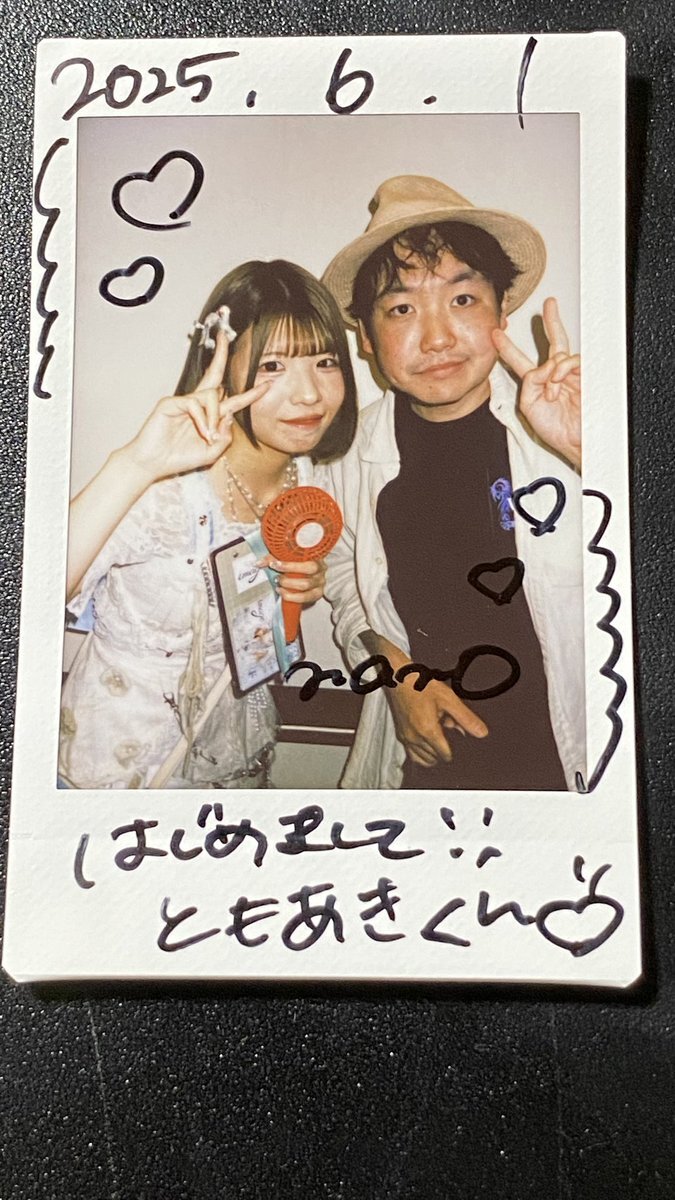 2025.6.1
nano
はじめまして
ともあきくん